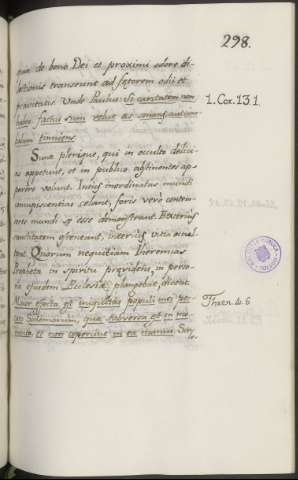 298.
quia de bono Dei et proximi odore di-
lectionis transeunt ad fœtorem odii et
pravitatis. Unde Paulus: Si caritatem non
habeo factus sum velut æs sonans aut cym-
balum tinniens.
1. Cor. 13. 1.
Sunt plerique, qui in occulto delici-
as appetunt, et in publico abstinentes ap-
parere volunt. Intus inordinatas mundi
concupiscentias celant, foris vero contem-
tores mundi se esse demonstrant. Exterius
sanctitatem ostentant, interius vitia occul-
tant. Quorum nequitiam Hieremias
Propheta in spiritu prævidens, in perso-
na ejusdem Ecclesiæ plangebat, dicens:
Maior effecta est iniquitas populi mei pec-
cato Sodomorum, quæ subversa est in mo-
mento, et non ceperunt in ea manus. So-
Thren. 4. 6